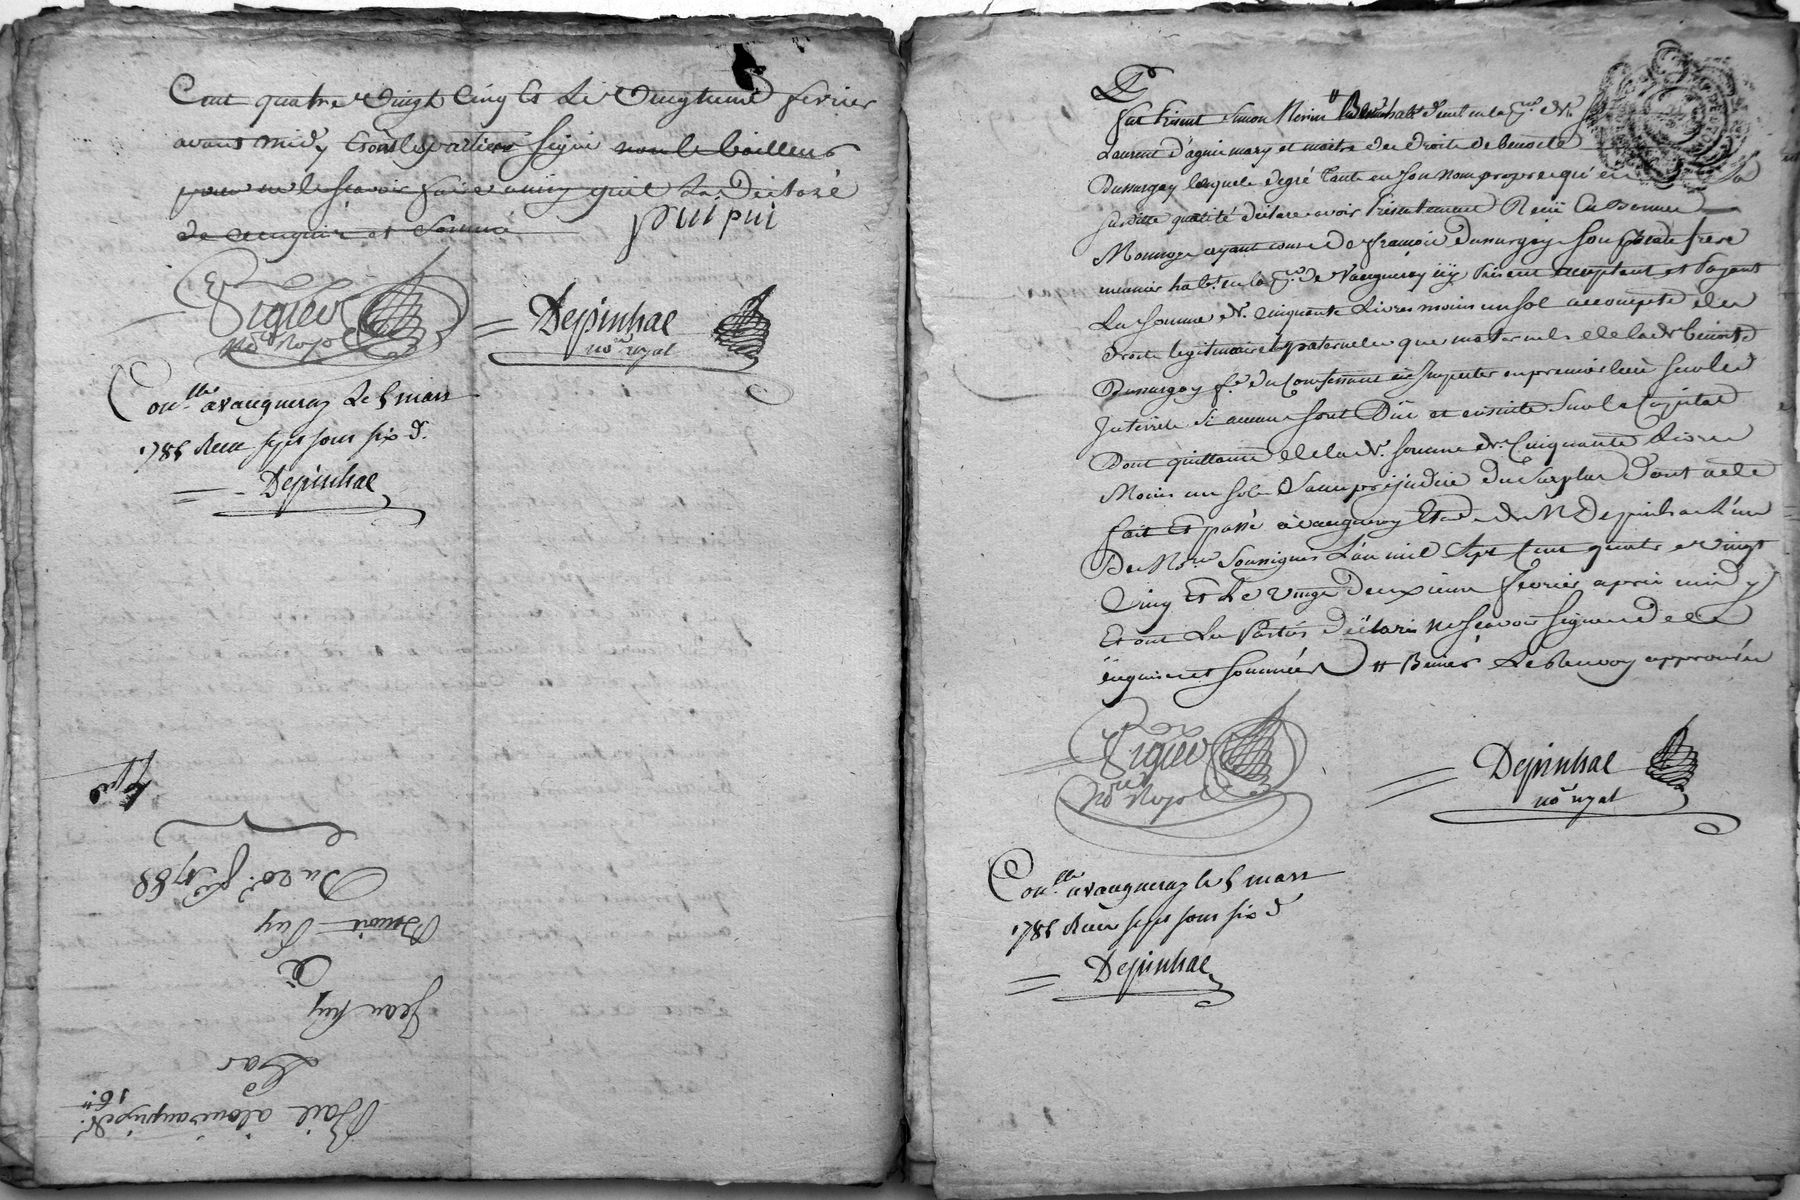 Cent quatre Vingt Cinq Et Le Vingtieme fevrier
avant midy Et ont les parties signé non le bailleur
pour ne le scavoir faire ainsy qu'il La Declaré
de ce enquis et Sommé
pui pui
Vigier
no.re Royo
Depinhac
no.re royal
Con.lle a vaugueray Le 5 mars
1785 Recu sept sous six d.
Depinhac
Du 20e fer 1788
Benoit Puy
à
Jean Puy
Par
Bail
16.
fut Present Simon habt
Laurent d'agni mary et maitre des droits de benoite
Dumurgey lequel de gré tant en son nom propre qu'en
ditte qualité déclare avoir Presentement Reçu
ayant cause de françois Dumurgey son frere
meunier habt en la de Vaugueray icy Present acceptant et Payant
La Somme de cinquante Livres moins un sol acompte des
droits legitimaires paternels que maternels de lad. benoite
Dumurgey fe. du Confessant a imputer en premier lieu sur les
Interets Si aucuns sont Dûs et ensuite Sur le Capital
Dont quittance de lad. somme de Cinquante Livres
Moins un sol Sans prejudice du Surplus Dont acte
fait Et passé à vaugueray Etude de M Depinhac L'un
Des No.re Soussignes L'an mil Sept Cent quatre vingt
Cinq Et Le Vingt deuxieme fevrier après midy
Et ont Les Parties Déclaré ne scavoir signer de ce
enquises et sommées Le Renvoy approuvé
Vigier
no.re Royo
Depinhac
no.re royal
Con.lle a vaugueray le 5 mars
1785 Recu sept sous six d
Depinhac